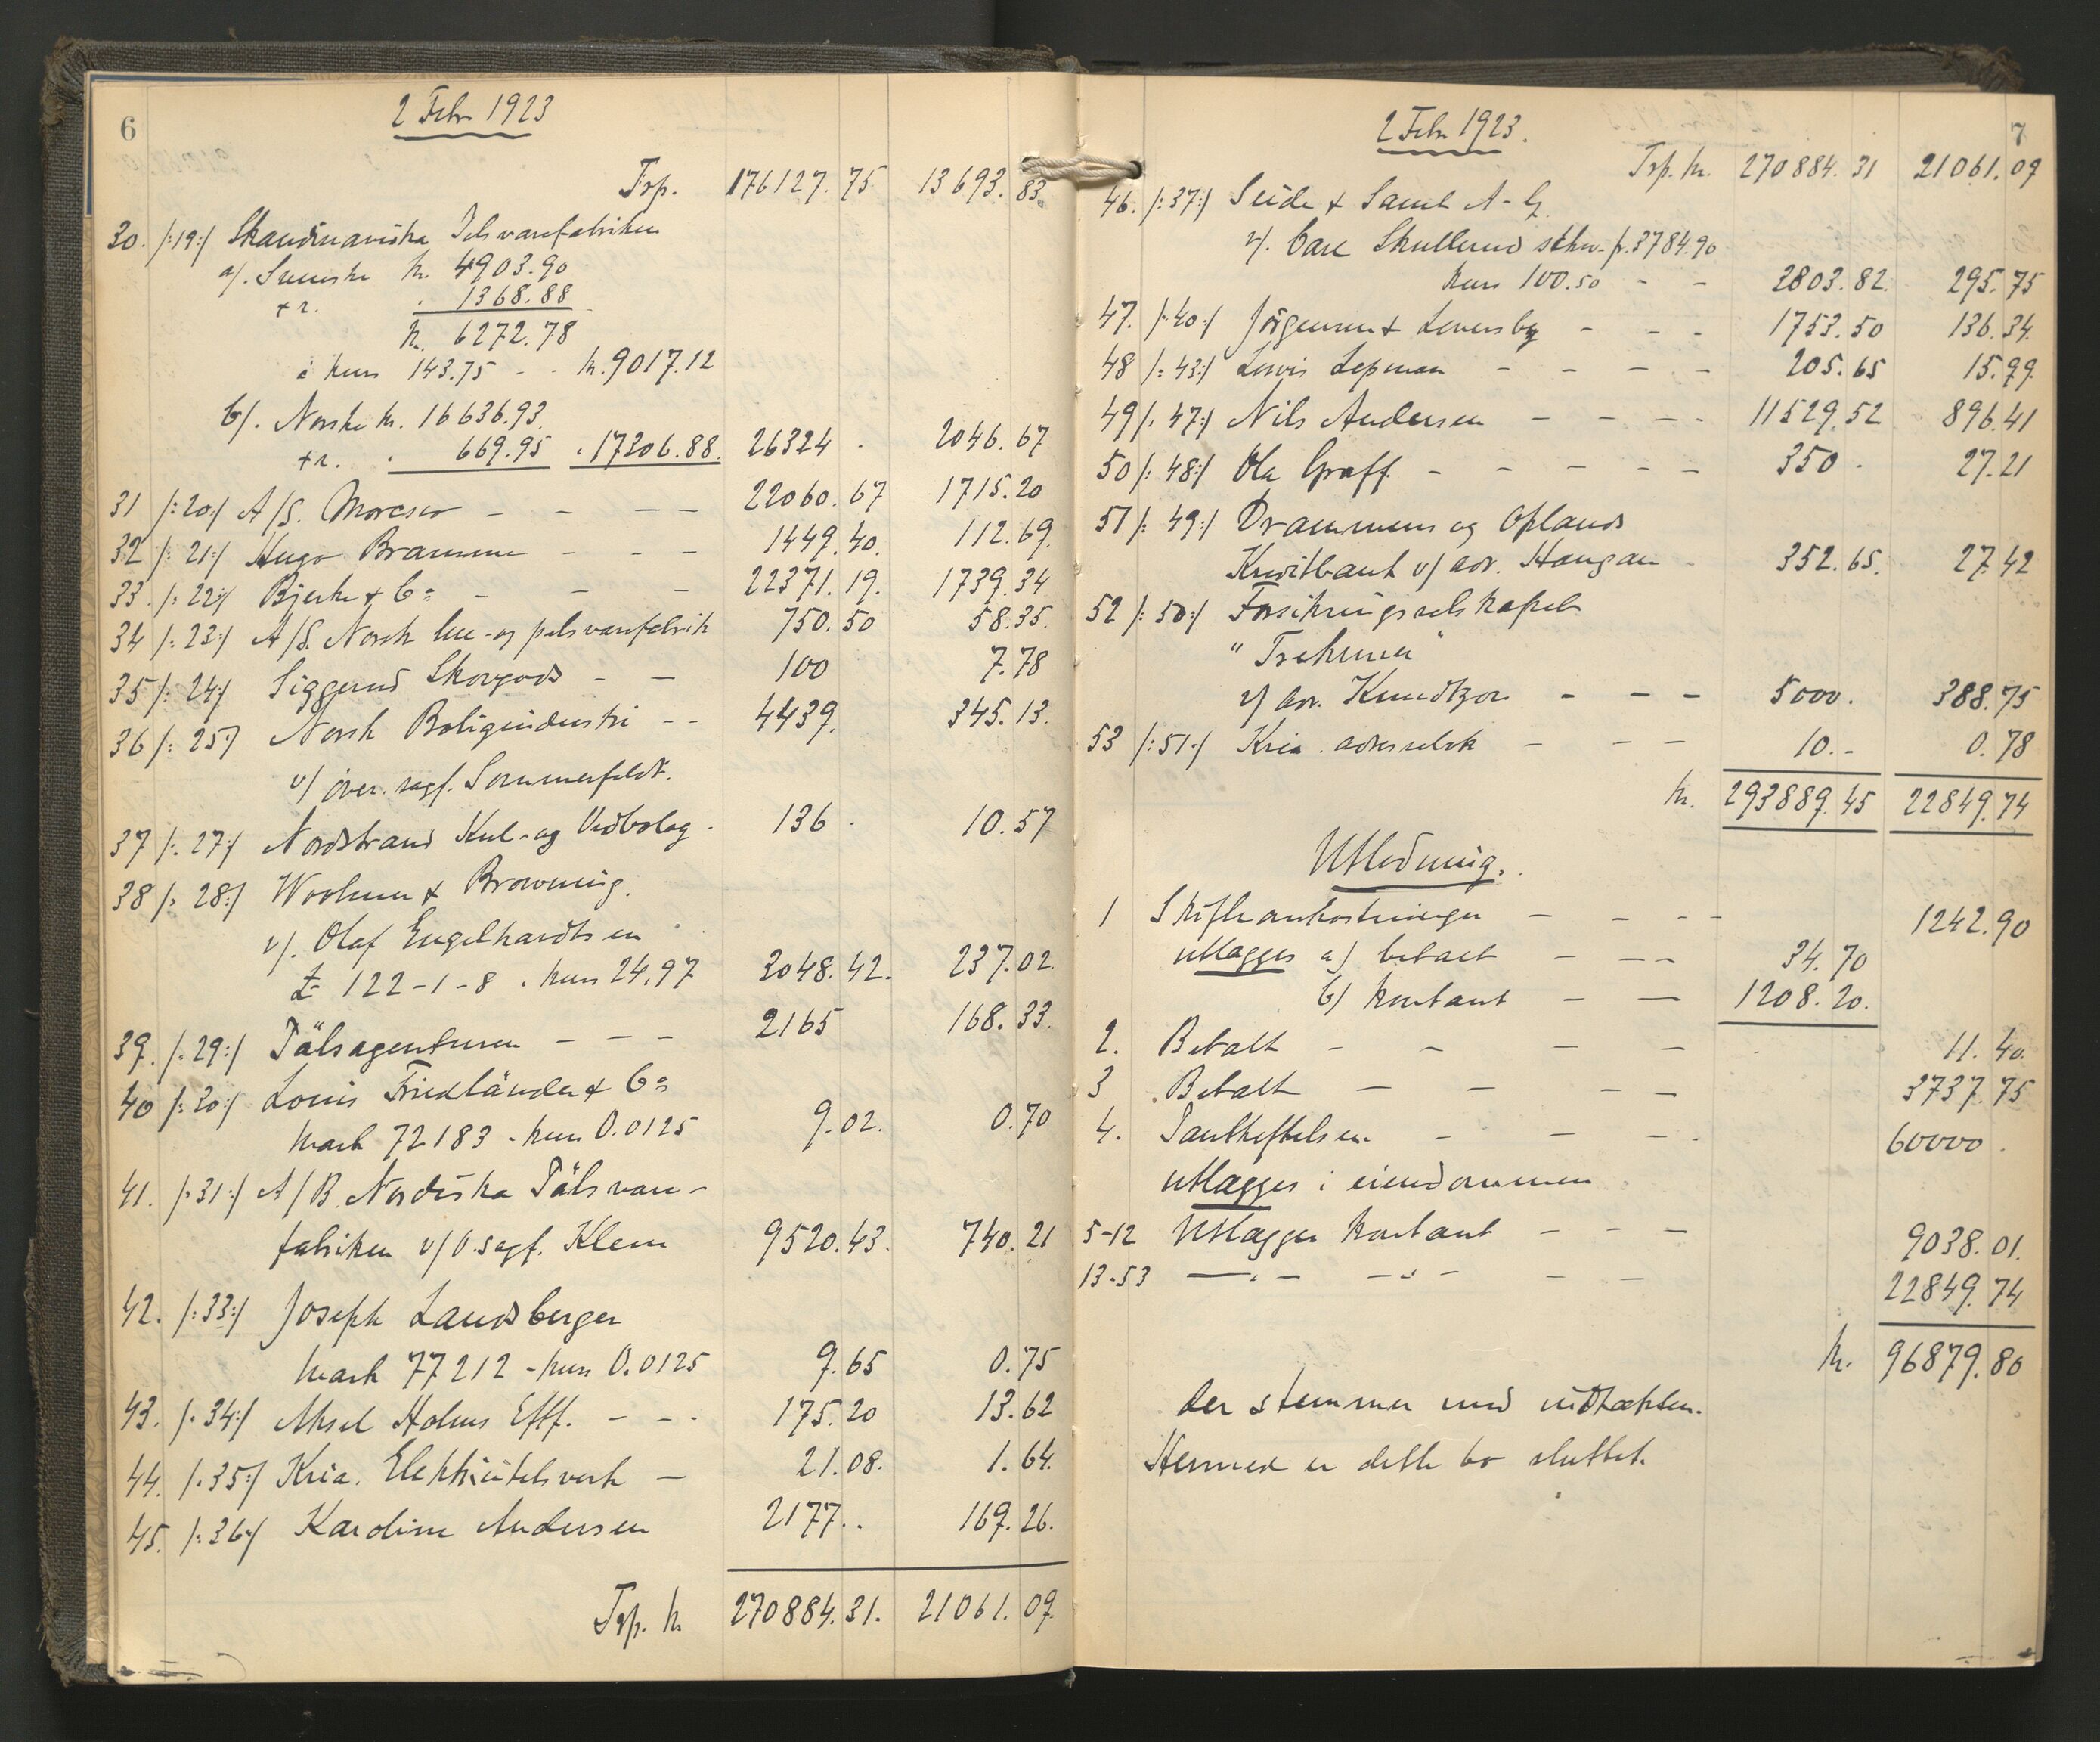 6
2 Febr 1923
Trp. 176127.75 13693.83
30. /:19:/ Skandinaviska Pelsvarefabriken
a/. Svenske kr. 4903.90
+ r. 1368.88
kr. 6272.78
à kurs 143.75 - - kr. 9017.12
b/. Norske kr. 16636.93
+ r. 669.95 17306.88. 26324 . 2046.67
31 /:20:/ A/S. Morescо - - - - 22060.67 1715.20
32 /:21:/ Hugo Brammer - - - 1449.40. 112.69.
33. /:22:/ Bjerke & Co - - - 22371.19. 1739.34
34 /:23:/ A/S. Norsk lue- og pelsvarefabrik 750.50 58.35.
35 /:24:/ Siggerud Skovgods - - 100 7.78
36 /:25:/ Norsk Boligindustri - - 4439. 345.13.
v/ over. sagf. Sommerfeldt.
37 /:27:/ Nordstrand Kul- og Vedbolag - 136 . 10.57
38 /:28:/ Woolner & Browning.
v/. Olaf Engelhardtsen
£ 122-1-8 . kurs 24.97 3048.42. 237.02.
39. /:29:/ Pälsagenturen - - - 2165 168.33.
40 /:30:/ Louis Friedländer & Co
Mark 72183 - kurs 0.0125 9.02. 0.70
41. /:31:/ A/B. Nordiska Pälsvare-
fabriken v/ O. sagf. Klem 9520.43. 740.21
42. /:33:/ Joseph Landsberger
Mark 77212 - kurs 0.0125 9.65 0.75
43. /:34:/ Aksel Holms Eftf. - - - 175.20 13.62
44. /:35:/ Kria. Elektricitetsverk - 21.08. 1.64.
45. /:36:/ Karoline Andersen 2177.. 169.26.
Trp. kr 270884.31. 21061.09
7
2 Febr 1923.
Trp. kr. 270884.31 21061.09
46. /:37:/ Seide & Samt A-G
v/. Carl Skullerud schw. fr. 3784.90
kurs 100.50 - - 3803.82. 295.75
47. /:40:/ Jörgensen & Levensby - - - 1753.50 136.34.
48 /:43:/ Lewis Lepman - - - - 205.65 15.99.
49 /:47:/ Nils Andersen - - - - 11529.52 896.41
50 /:48:/ Ola Graff. - - - - - 350 - 27.21
51 /:49:/ Drammens og Oplands
Kreditbank v/ adv. Haugan 352.65. 27.42
52 /:50:/ Forsikringsselskapet
v/ adv. Knudtzon - - - 5000. 388.75
53 /:51:/ Kria. adresselsk - - - 10.- 0.78
kr. 293889.45 22849.74
Utlodning.
1 Skifteomkostninger - - - - 1242.90
utlægges a) betalt - - - 34.70
b) kontant - - 1208.20.
2. Betalt - - - - 11.40.
3 Betalt - - - - 3737.75
4. Pantheftelsen - - - . 60000 .
utlægges i eiendommen
5-12 Utlægges kontant - - - 9038.01.
13-53 -"- -"- - - 22849.74
kr. 96879.80
der stemmer med indtækten.
Hermed er dette bo sluttet.